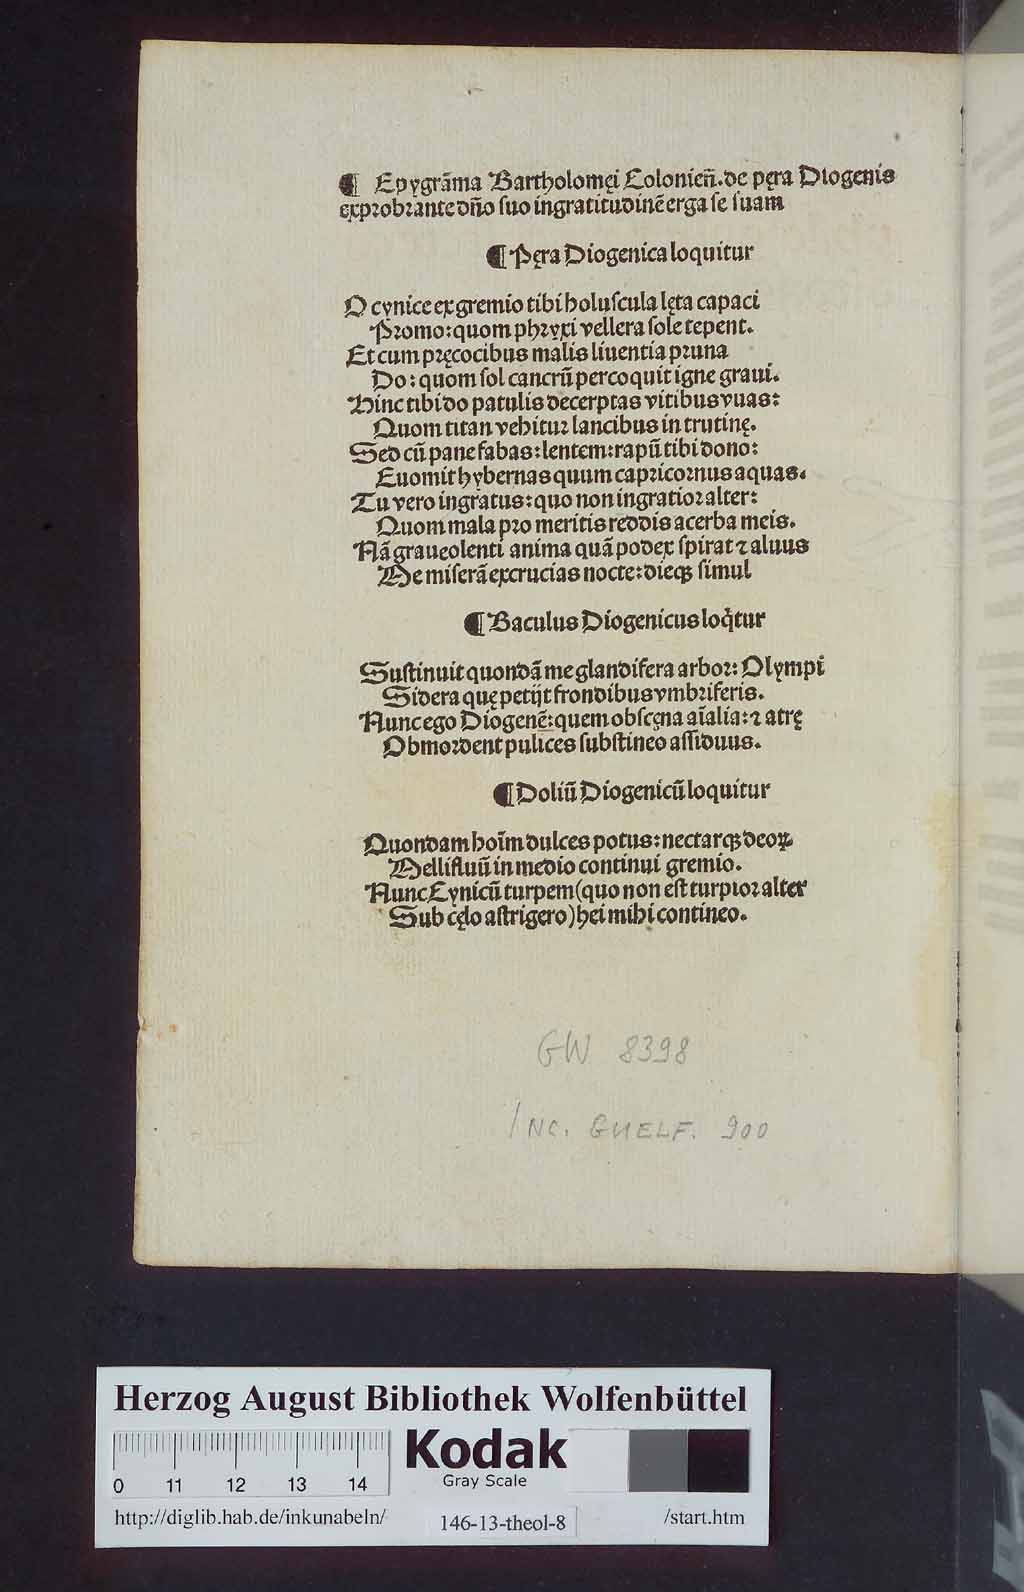 ¶ Epygrãma Bartholomęi Colonieñ. de pęra Diogenis
exprobrante dño suo ingratitudinẽ erga se suam
¶ Pęra Diogenica loquitur
O cynice ex gremio tibi holuscula lęta capaci
Promo: quom phryxi vellera sole tepent.
Et cum pręcocibus malis liuentia pruna
Do: quom sol cancrũ percoquit igne graui.
Hinc tibi do patulis decerptas vitibus vuas:
Quom titan vehitur lancibus in trutinę.
Sed cũ pane fabas: lentem: rapũ tibi dono:
Euomit hybernas quum capricornus aquas.
Tu vero ingratus: quo non ingratior alter:
Quom mala pro meritis reddis acerba meis.
Nã graueolenti anima quã podex spirat ⁊ aluus
Me miserã excrucias nocte: dieqꝫ simul
¶ Baculus Diogenicus loq̃tur
Sustinuit quondã me glandifera arbor: Olympi
Sidera quę petijt frondibus vmbriferis.
Nunc ego Diogenẽ: quem obscęna aĩalia: ⁊ atrę
Obmordent pulices substineo assiduus.
¶ Doliũ Diogenicũ loquitur
Quondam hoĩm dulces potus: nectarqꝫ deoꝝ
Mellifluũ in medio continui gremio.
Nunc Cynicũ turpem (quo non est turpior alter
Sub cęlo astrigero) hei mihi contineo.
GW 8398
Inc. GUELF. 900
Herzog August Bibliothek Wolfenbüttel
Kodak
Gray Scale
0 11 12 13 14
http://diglib.hab.de/inkunabeln/ 146-13-theol-8 /start.htm